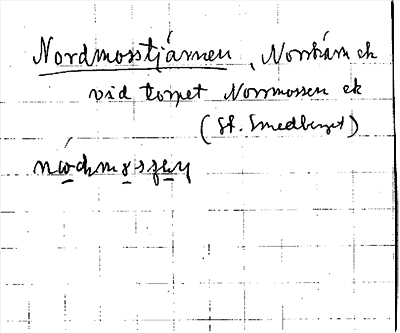 Nordmosstjärnen, Norrkärn ek
vid torpet Norrmossen ek
(St. Smedberget)